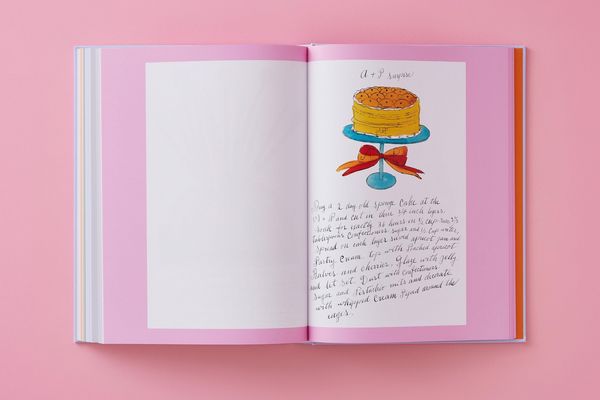 A + P surprise
Buy a 2 day old sponge cake at the
A + P and cut in three 3/4 inch layers.
Soak for exactly 36 hours in 1/2 cup rum,
tablespoons Confectioners sugar and 1/2 Cup water.
Spread on each layer sieved apricot jam and
Pastry Cream. top with Poached apricot
Halves and cherries. Glaze with jelly
and let set. Dust with Confectioners
sugar and Pistachio nuts and decorate
with whipped Cream around the
edges.